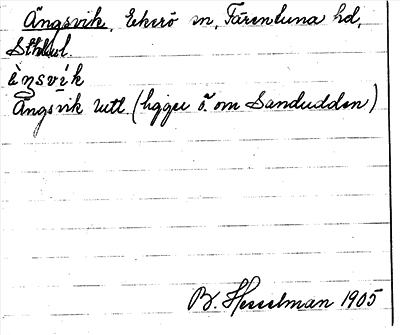 Ängsvik, Ekerö sn, Färentuna hd,
Sthlm l.
ὲŋsvi̇́k
Ängsvik Utl. (ligger ö. om Sandudden)
B. Hesselman 1905